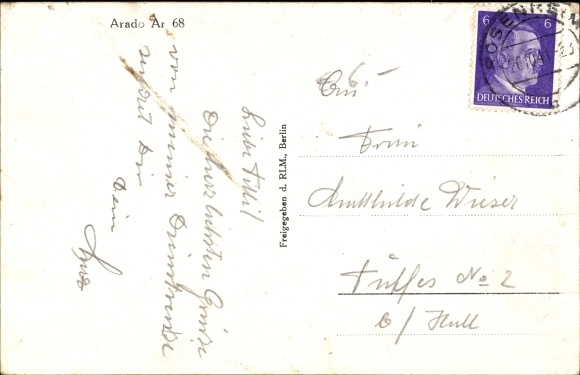 Arado Ar 68
Liebe Tilli!
Die herzlichsten Grüsse
von meiner Dienstreise
sendet Dir
Dein
Freigegeben d. RLM., Berlin
6 6
DEUTSCHES REICH
ROSENHEIM
An
Frau
Wieser
No 2
b/ Hall